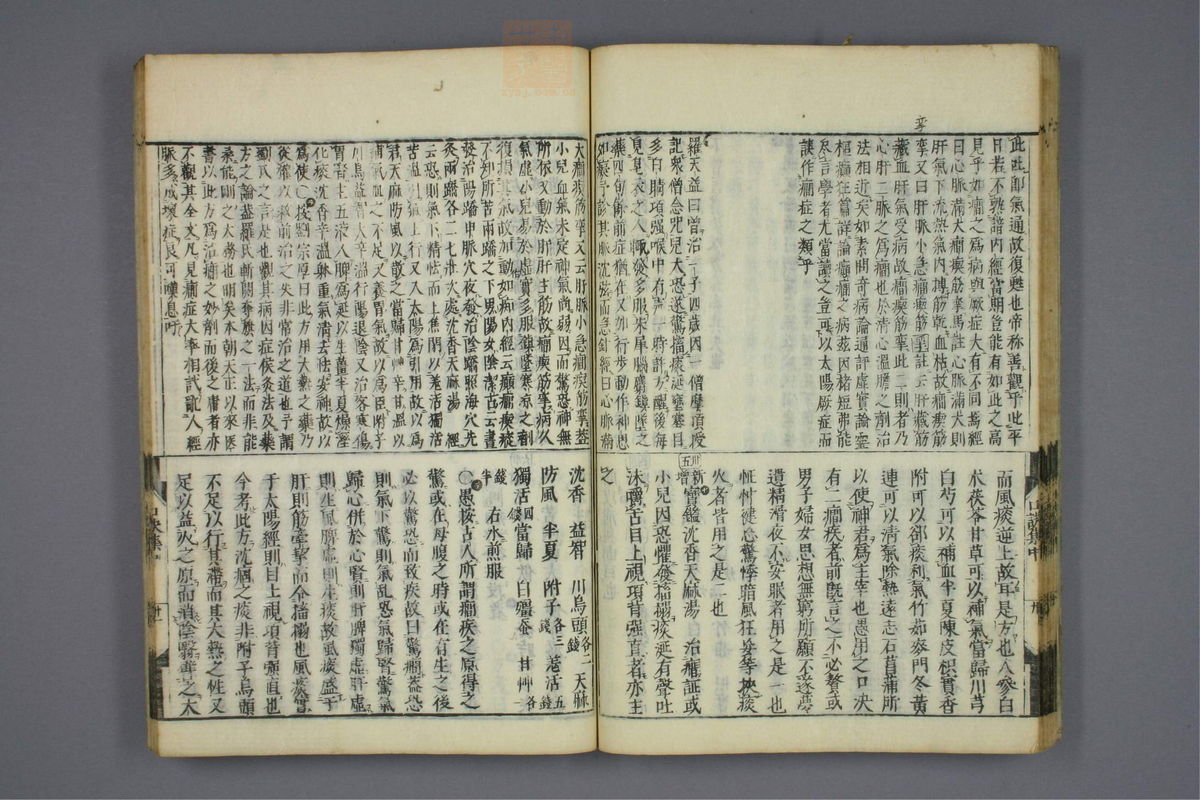 此吐即氣通故復甦也帝称善觀乎此乎
日若不熟諳内經當期豈能有如此之高
見乎如癇之為病與厥症大有不同焉經
曰心脈滿大癇瘈筋攣馬註心脈滿大則
肝氣下流熱氣内摶筋乾血枯故癇瘈筋
攣又曰肝脈小急癇瘈筋攣王註云肝藏筋
藏血肝氣受病故癇瘈筋攣此二則者乃
心肝二脈之為癇也於清心溫膽之劑治
法相近矣如素問奇病論通評虛實論靈
樞癲狂篇詳論癲癇之病茲因楮短弗能
尽言學者尤當讀之豈可以太陽厥症而
誤作癇症之類乎
羅天益曰曾治一子四歳因一僧摩頂授
記衆僧念咒兒大恐遂驚搐痰涎壅塞目
多白睛項强喉中有声一時許方醒後每
見衣之人輙發多服朱犀腦麝鎮墜之
藥四旬餘前症猶在又加行步動作神思
如癡予診其脈沈弦而急針經曰心脈滿
而風痰逆上故耳是方也人參白
朮茯苓甘草可以補氣當歸川芎
白芍可以補血半夏陳皮枳實香
附可以郤痰利氣竹茹麥門冬黄
連可以清氣除熱遠志石菖蒲所
以使神君為主宰也愚用之口决
有二癇疾者前旣言之不必贅或
男子婦女思想無窮所願不遂夢
遺精滑夜不安眠者用之是一也
怔忡健忘驚悸暗風狂妄等挾痰
火者皆用之是二也
卅五新增寶鑑沈香天麻湯 治癇証或
小兒因恐懼發搐搦痰涎有聲吐
沫嚼舌目上視項背强直者亦主
之
大癇瘈筋攣又云肝脈小急癇瘈筋攣葢
小兒血氣未定神氣尚弱因而驚恐神無
所依又動於肝肝主筋故癇瘈筋攣病久
氣虚小兒易於虛實多服鎮墜寒凉之劑
復損其氣故加動如痴内經云癲癇瘈瘲
不知所苦兩蹻之下男陽女陰潔古云晝
發治陽蹻申脈穴夜發治陰蹻照海穴先
灸兩蹻各二七壯次處沈香天麻湯 經
云恐則氣下精怯而上焦閉以羗活獨活
苦溫引氣上行又入太陽為引用故以為
君天麻防風以散之當歸甘艸辛甘温以
補氣血之不足又養胃氣故以為臣附子
川烏益智大辛温行陽退陰又治客寒傷
胃腎主五液入脾為涎以生薑半夏燥湿
化痰沈香辛温躰重氣清去怯安神故以
為使 按劉宗厚曰此方用大熱之藥乃
從権以救前治之失非常治之道也予謂
劉氏之言是也觀其病因症候灸法及藥
方之論羅氏之一法而非能
之太務也明矣本朝天正以來医
書以此方為治癇之妙劑而後之庸者亦
不觀其全文凡見癇症大率相試亂人經
脈多成壞症良可嘆息吁
沈香 益智 川烏頭各二錢 天麻
防風 半夏 附子各三錢 羗活五錢
獨活四錢 當歸 白殭蚕 甘艸各
半錢 右水煎服
○愚按古人所謂癇疾之原得之
驚或在母腹之時或在有生之後
必以驚恐而致疾故曰驚癇葢恐
則氣下驚則氣乱恐氣歸腎驚氣
歸心併於心腎則肝脾獨虛肝虛
則生風脾虛則生痰故風痰盛于
肝則筋牽挛而令搐搦也風痰實
于太陽經則目上視項背强直也
今考此方沈痼之痰非附子烏頭
不足以行其滯而其大熱之性又
足以益火之原而消陰翳薑之大